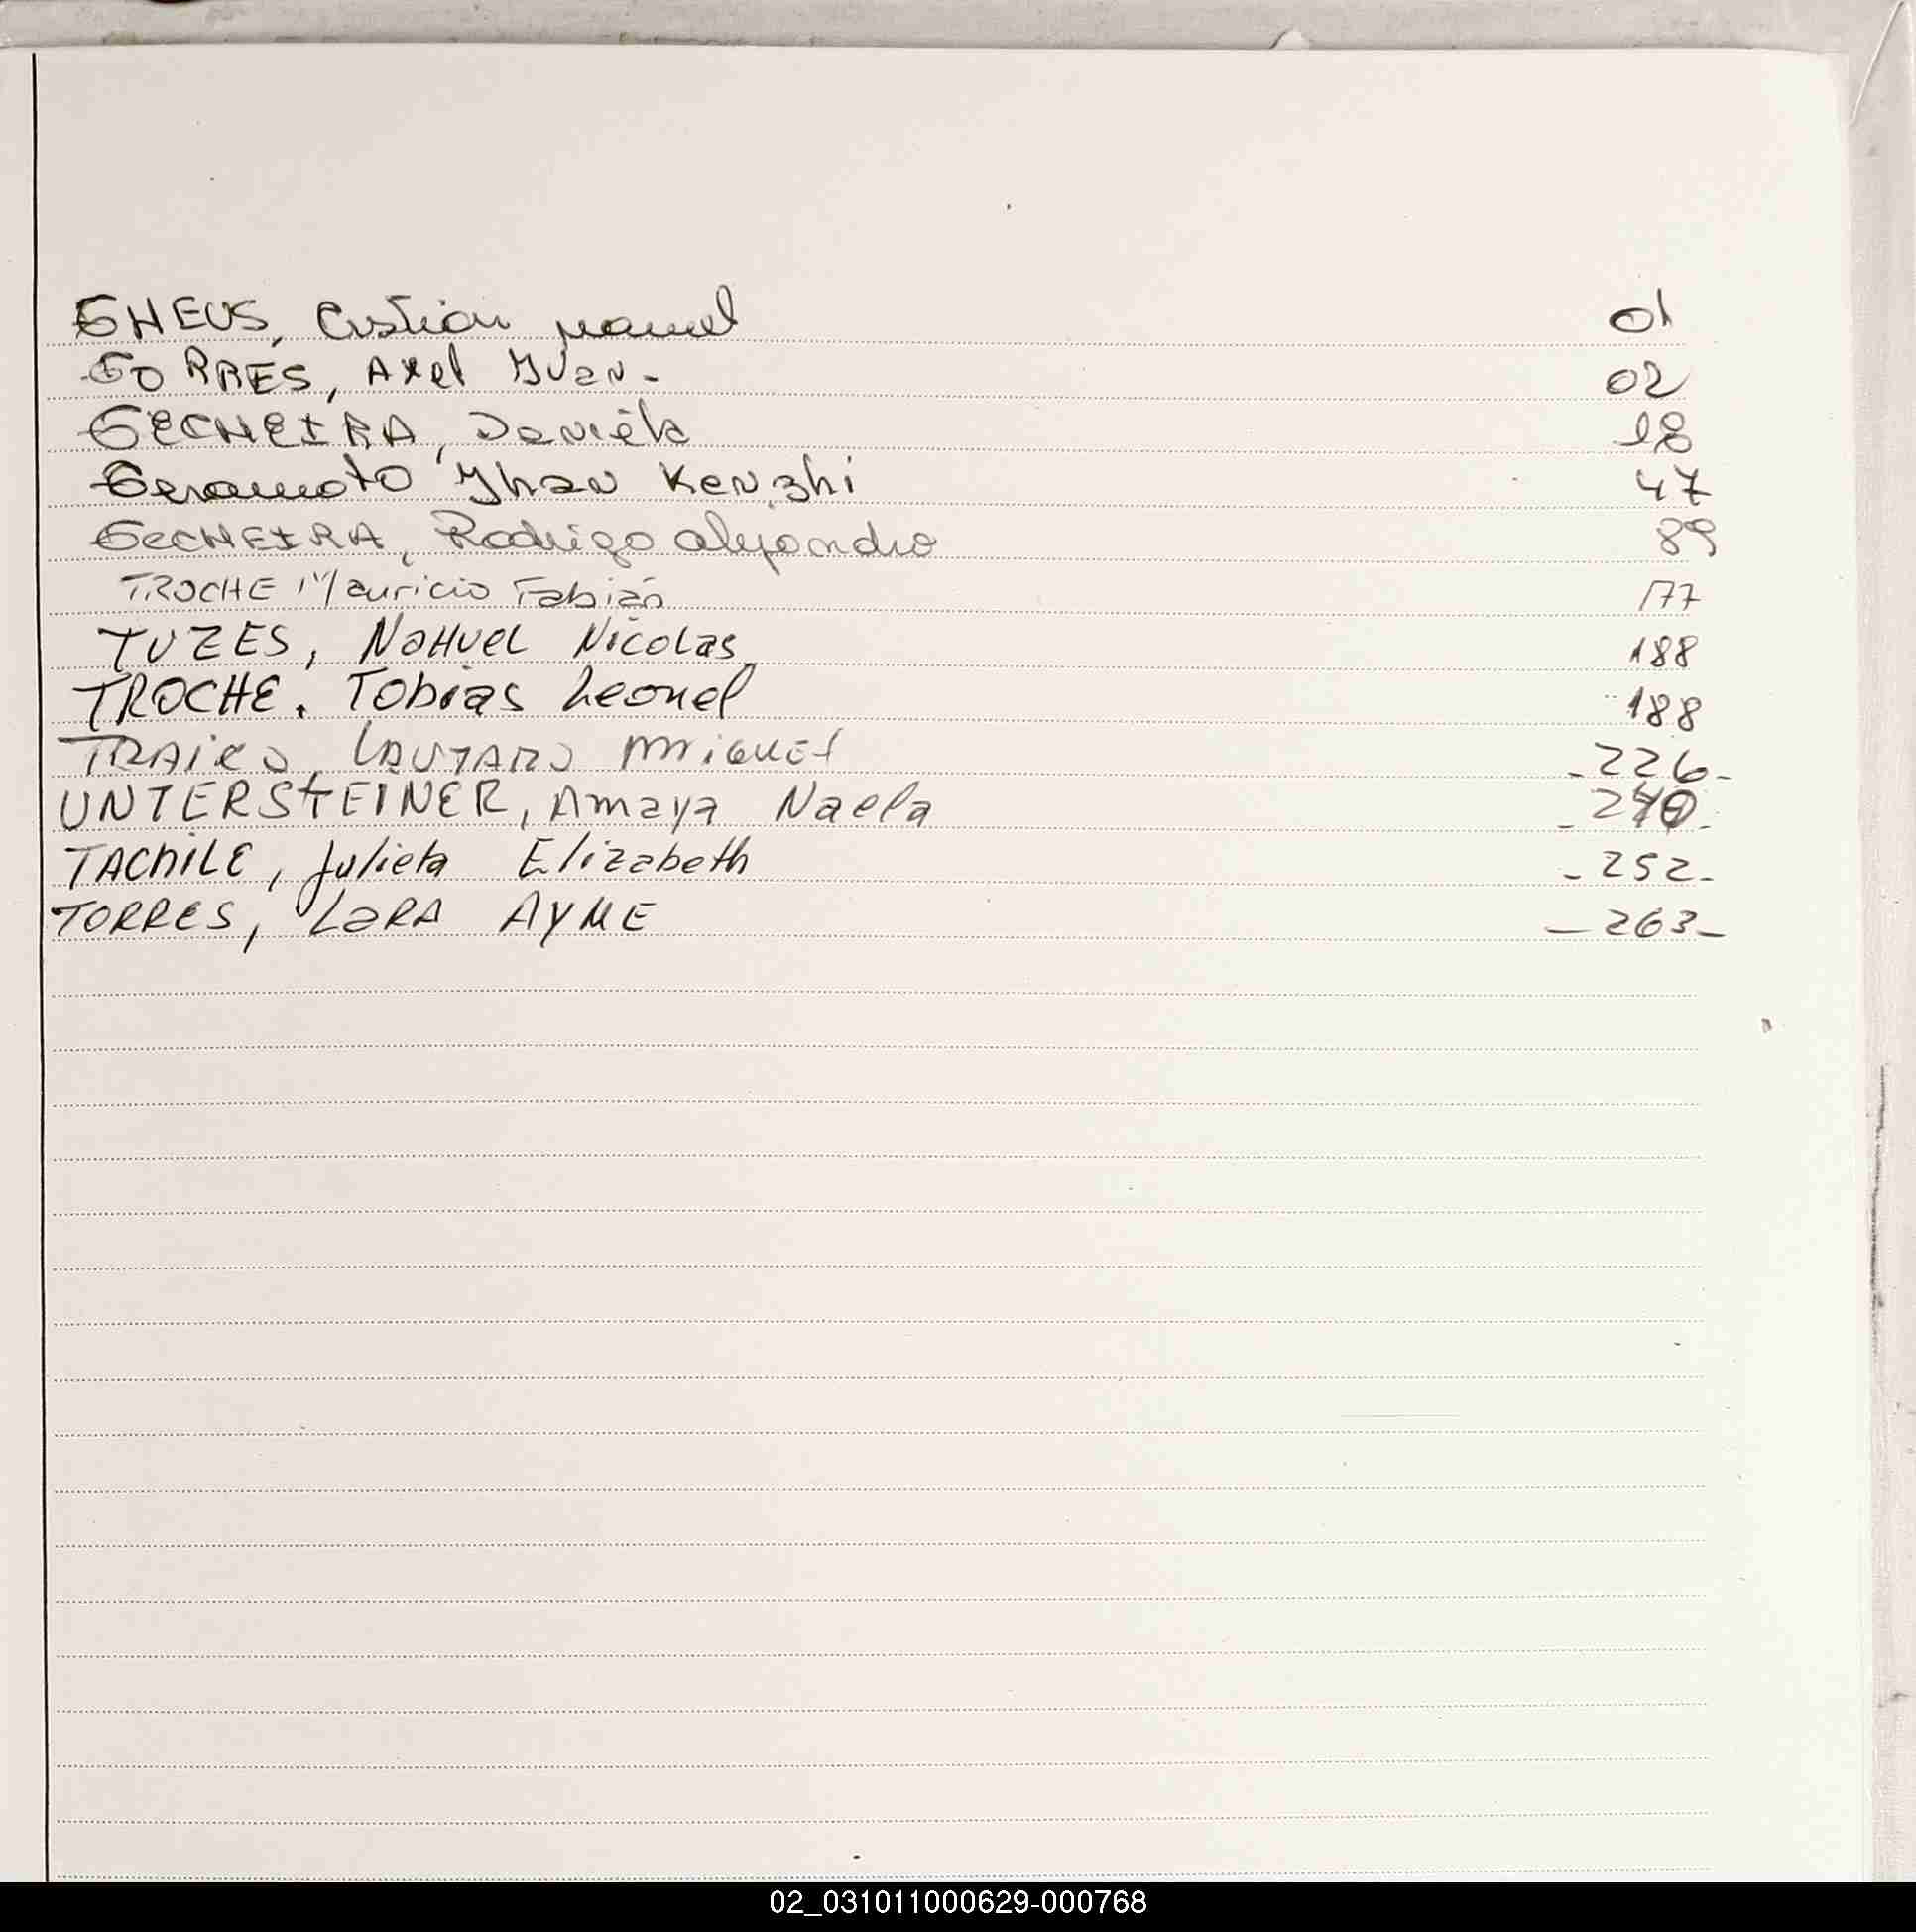 THEUS, Cristian Manuel 01
TORRES, Axel Ivan- 02
TECHEIRA, Daniela 18
Teramoto Jhan Kenzhi 47
TECHEIRA, Rodrigo Alejandro 89
TROCHE Mauricio Fabián 177
TUZES, NaHuel Nicolas 188
TROCHE. Tobias Leonel 188
TRAICO, LAUTARO Miguel -226-
UNTERSTEINER, Amaya Naela
TACHILE, Julieta Elizabeth -252-
TORRES, LaRA AYME -263-
02_031011000629-000768